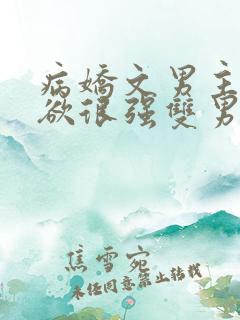 病嬌文男主
欲很强雙男
焦雪宛
未经同意禁止转载